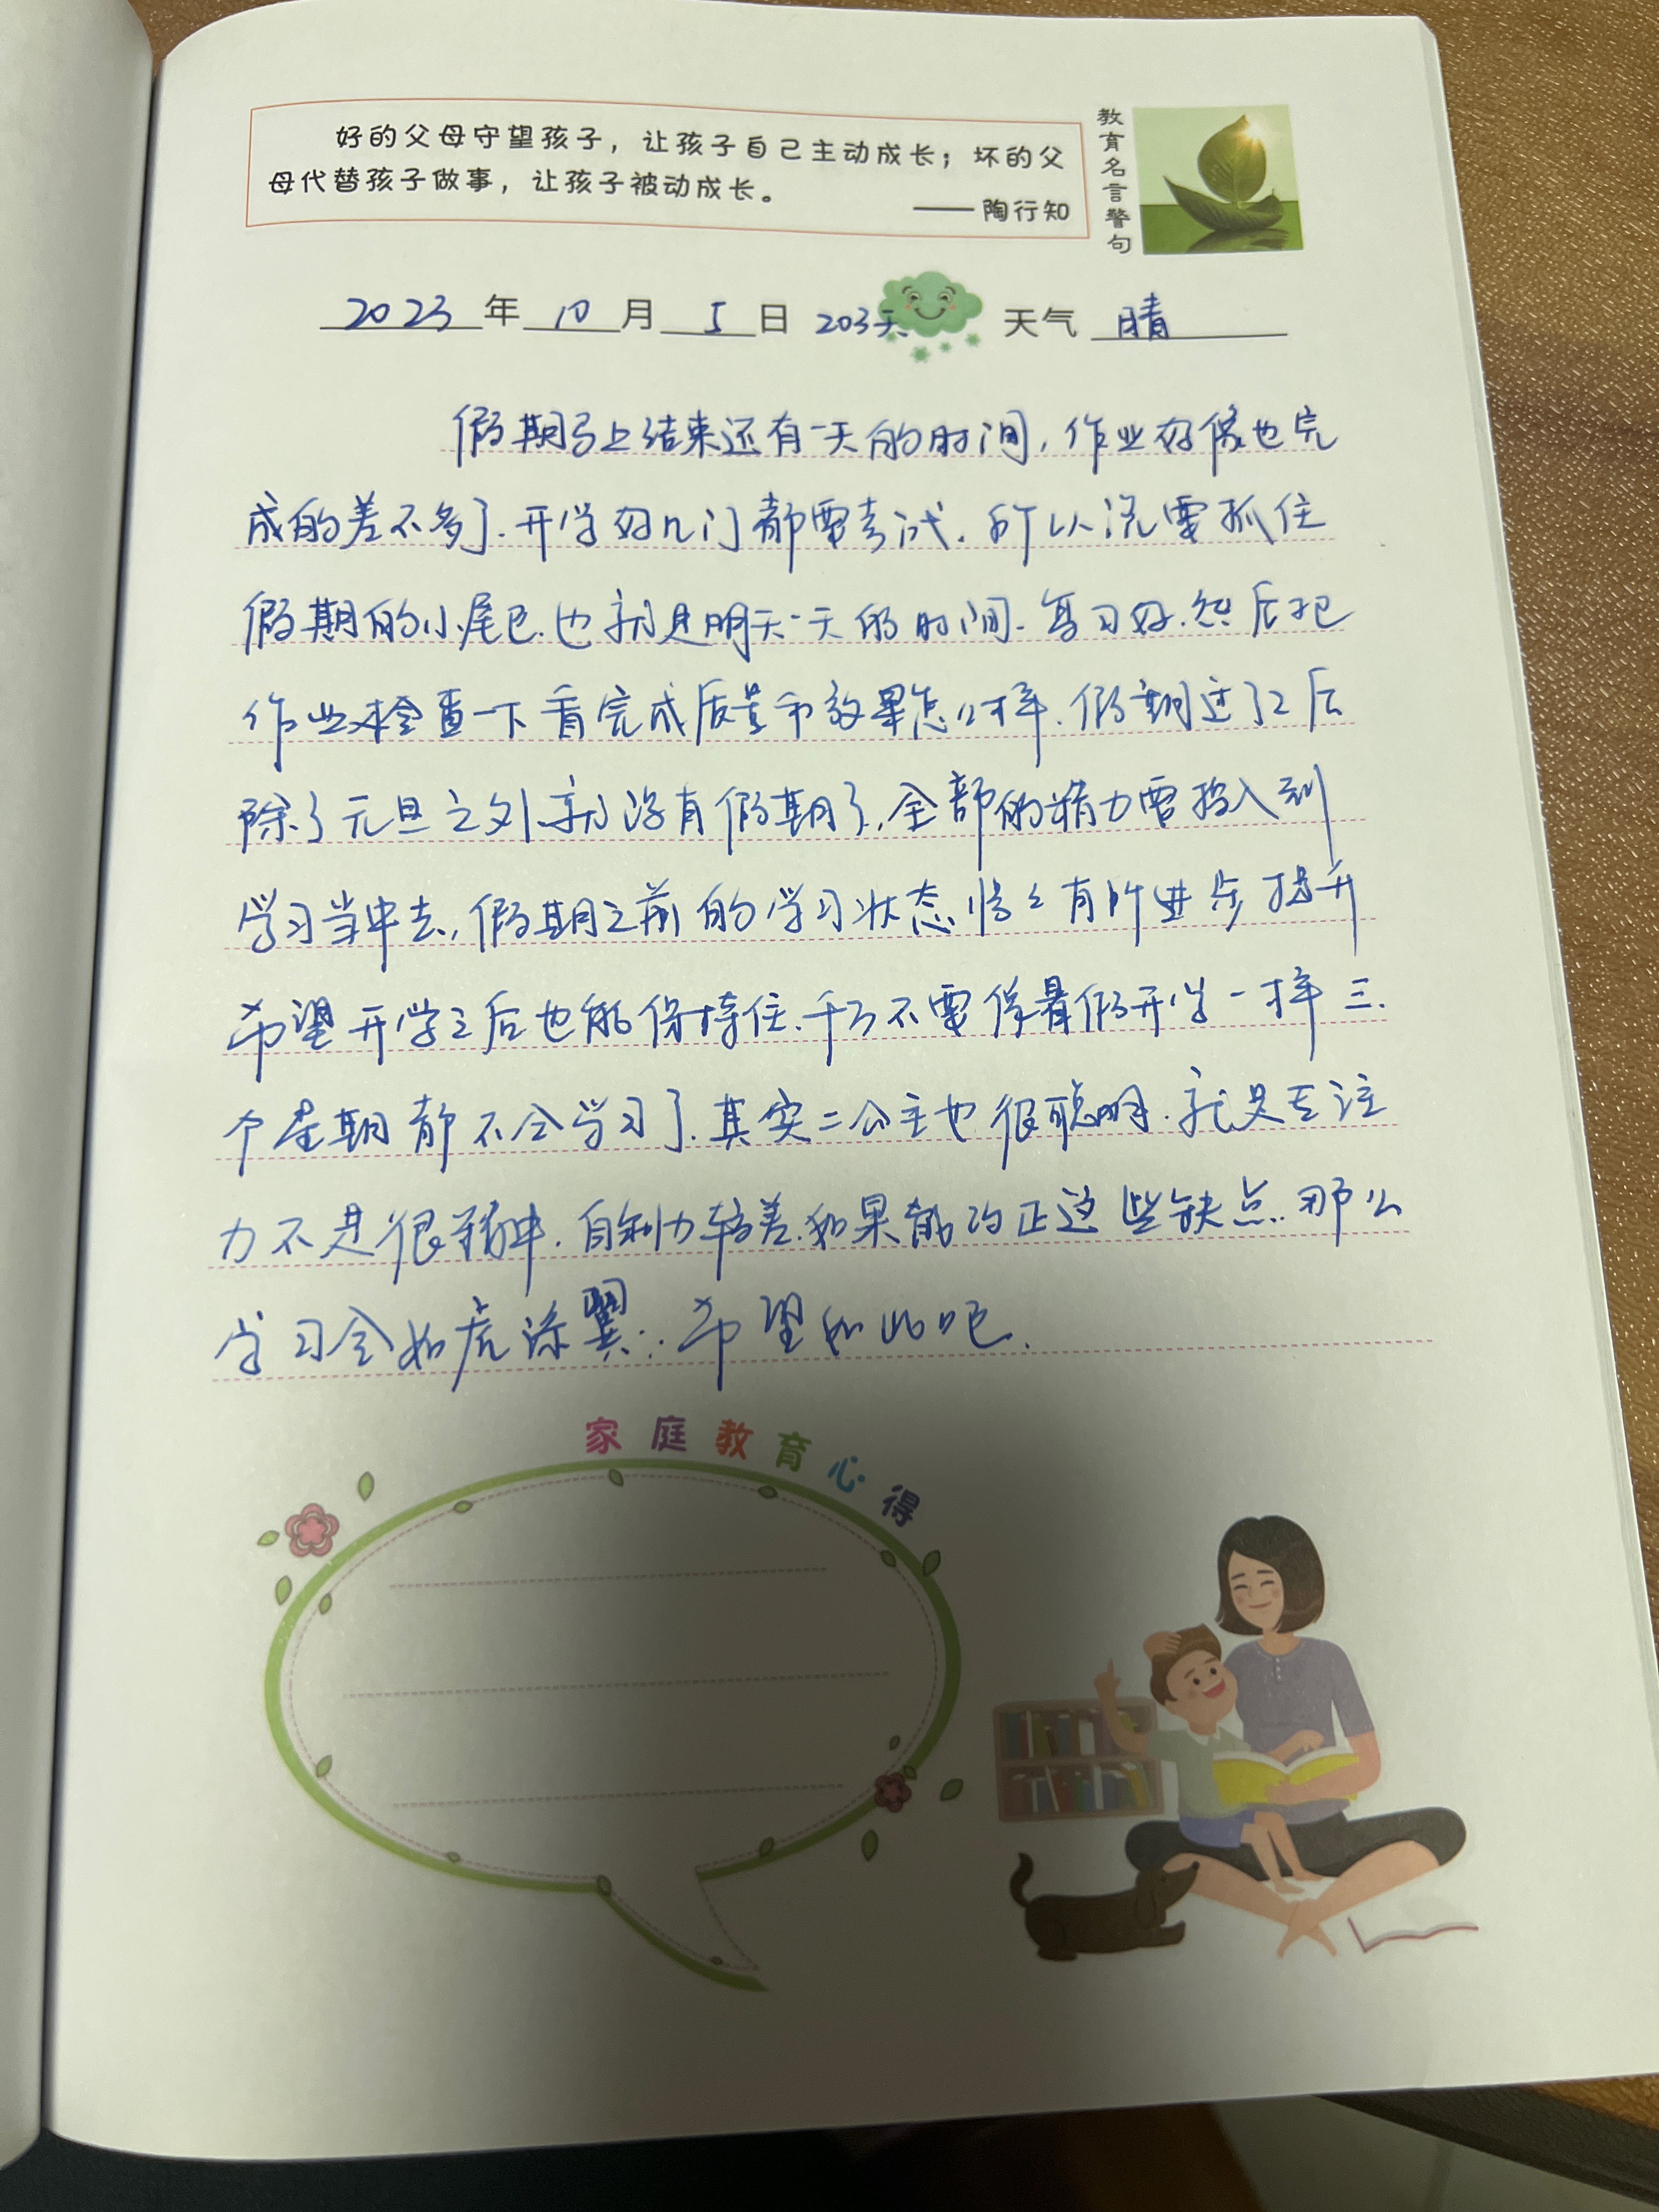 好的父母守望孩子，让孩子自己主动成长；坏的父
母代替孩子做事，让孩子被动成长。
——陶行知
教育名言警句
2023年10月5日 203天 天气 晴
假期马上结束还有一天的时间，作业好像也完
成的差不多了.开学好几门都需考试.所以说要抓住
假期的小尾巴.也就是明天一天的时间.复习好.然后把
作业检查一下看完成质量和效果怎么样.假期过了之后
除了元旦之外,就没有假期了,全部的精力需投入到
学习当中去,假期之前的学习状态 有所进步提升
希望开学之后也能保持住.千万不要像暑假开学一样三.
个星期都不会学习了.其实二公主也很聪明.就是专注
力不是很集中.自制力较差.如果能改正这些缺点.那么
学习会如虎添翼.希望如此吧.
家庭教育心得